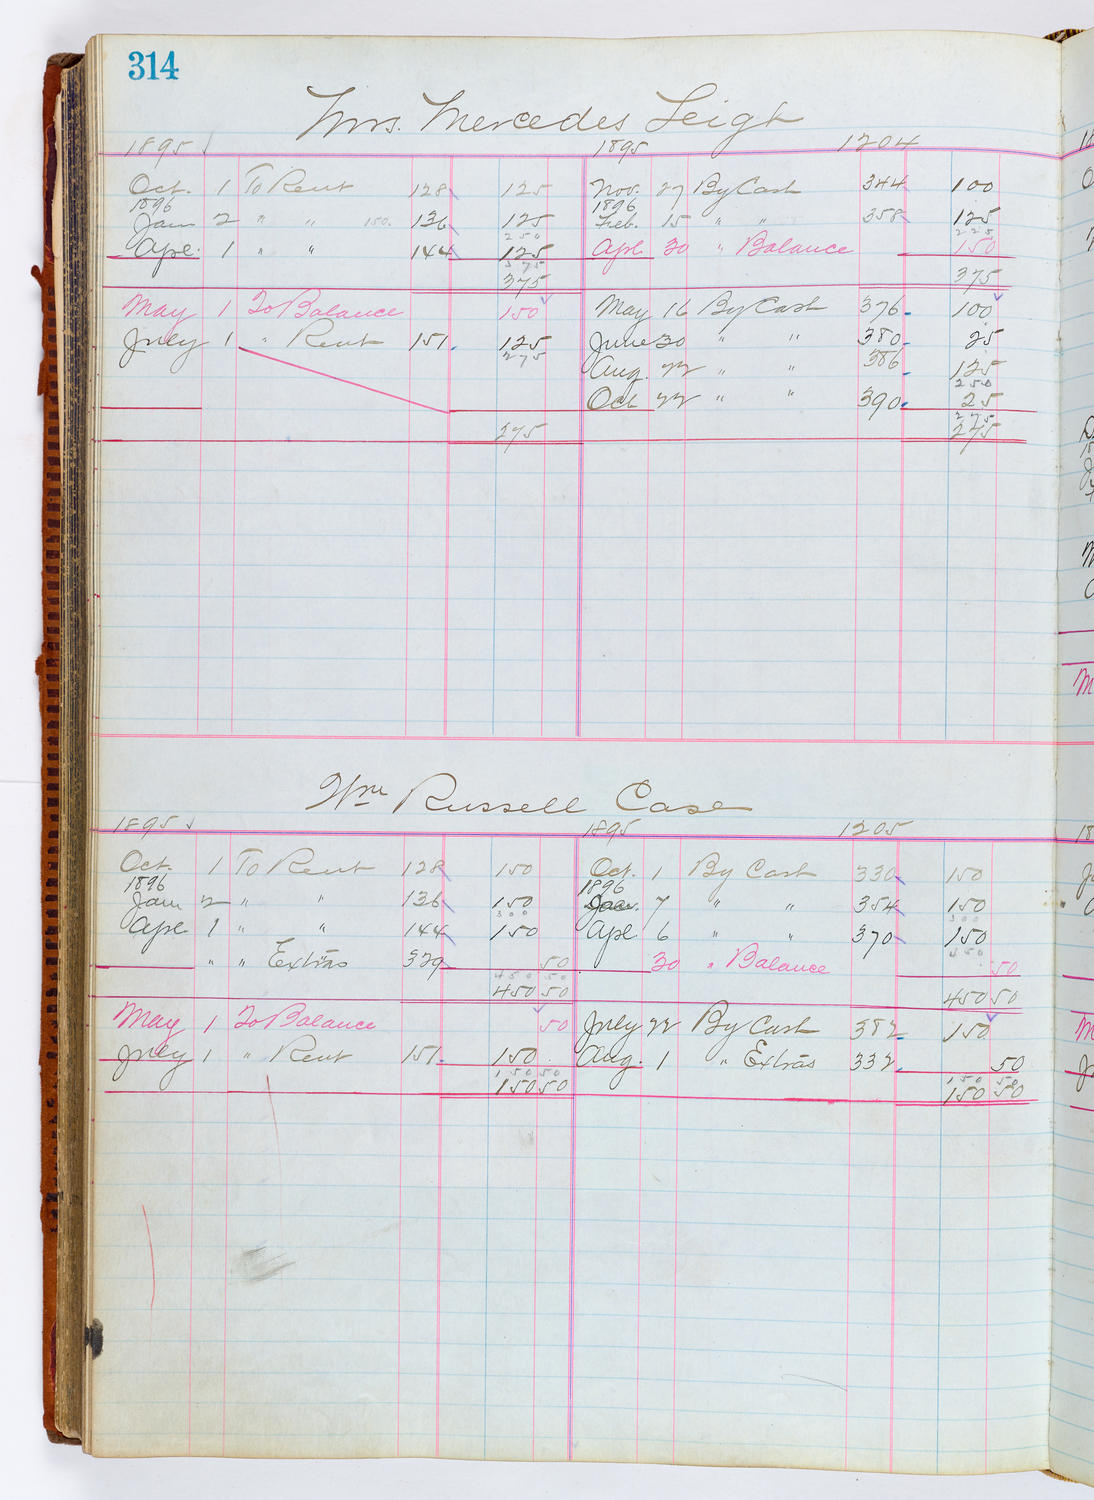 314
Mrs. Mercedes Leigh
1895 1895 1204
Oct. 1 To Rent 128 125 Nov. 27 By Cash 344 100
1896 1896
Jan 2 " " 150. 136 125 Feb. 15 " " 358 125
250 225
Apl. 1 " " 144 125 Apl. 30 " Balance 150
375
375 375
May 1 To Balance 150 May 16 By Cash 376 100
July 1 " Rent 151 125 June 30 " " 380 25
275
Aug. 22 " " 386 125
250
Oct 22 " " 390 25
275
275 275
Wm Russell Case
1895 1895 1205
Oct. 1 To Rent 128 150 Oct. 1 By Cash 330 150
1896 1896
Jan 2 " " 136 150 Jan. 7 " " 354 150
300 300
Apl 1 " " 144 150 Apl 6 " " 370 150
450
" " Extras 329 50 30 " Balance 50
450 50
450 50 450 50
May 1 To Balance 50 July 22 By Cash 382 150
July 1 " Rent 151 150 Aug. 1 " Extras 332 50
150 50 150 50
150 50 150 50